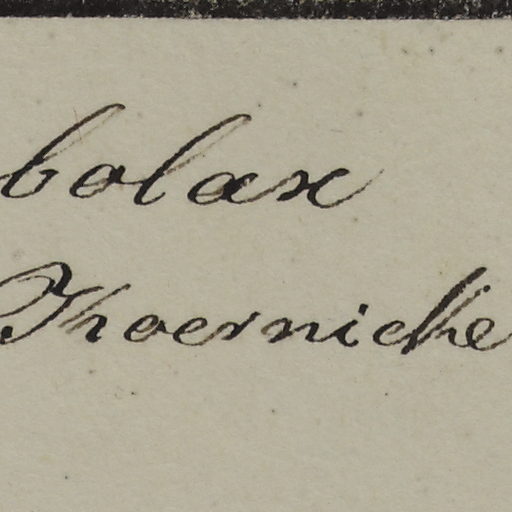 bolax
Thoernicke